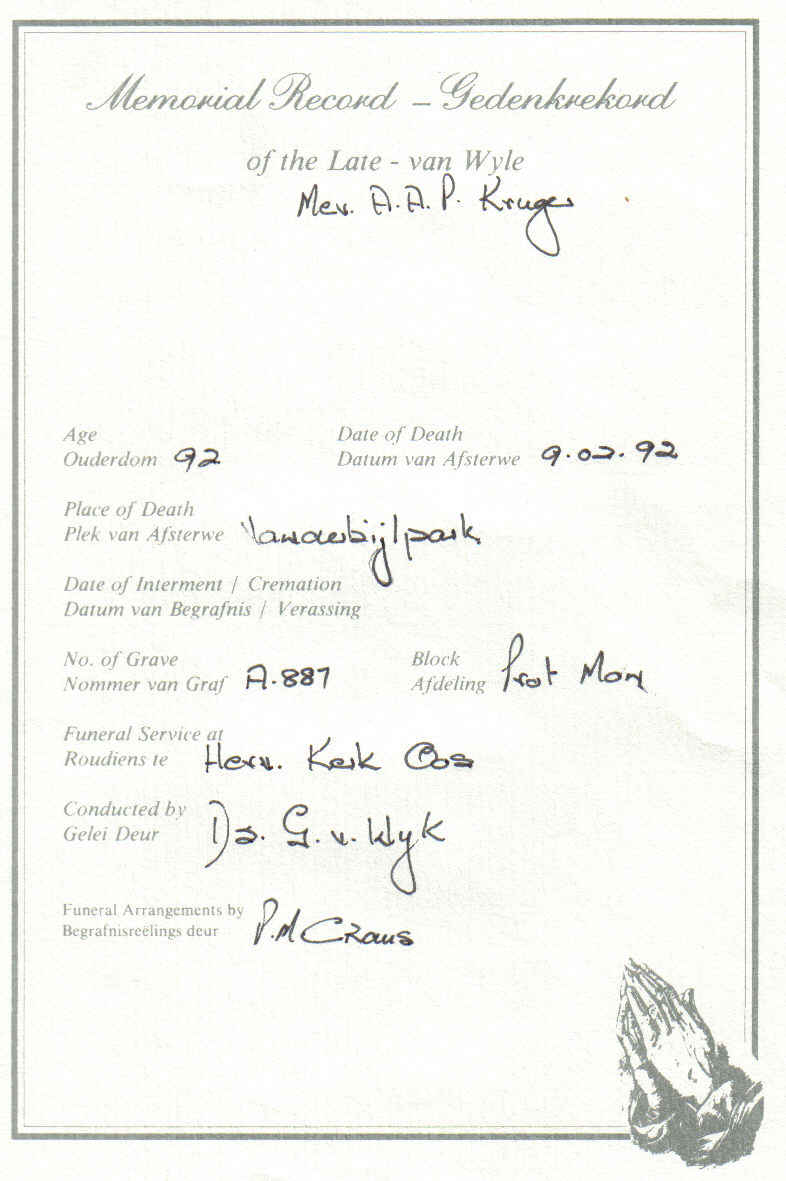 Memorial Record – Gedenkrekord
of the Late - van Wyle
Mev. A.A.P. Kruger
Age
Ouderdom 92
Date of Death
Datum van Afsterwe 9.02.92
Place of Death
Plek van Afsterwe Vanderbijlpark
Date of Interment / Cremation
Datum van Begrafnis / Verassing
No. of Grave
Nommer van Graf A.887
Block
Afdeling Prot Mon
Funeral Service at
Roudiens te Herv. Kerk Oos
Conducted by
Gelei Deur Ds. G. v. Wyk
Funeral Arrangements by
Begrafnisreëlings deur P.M